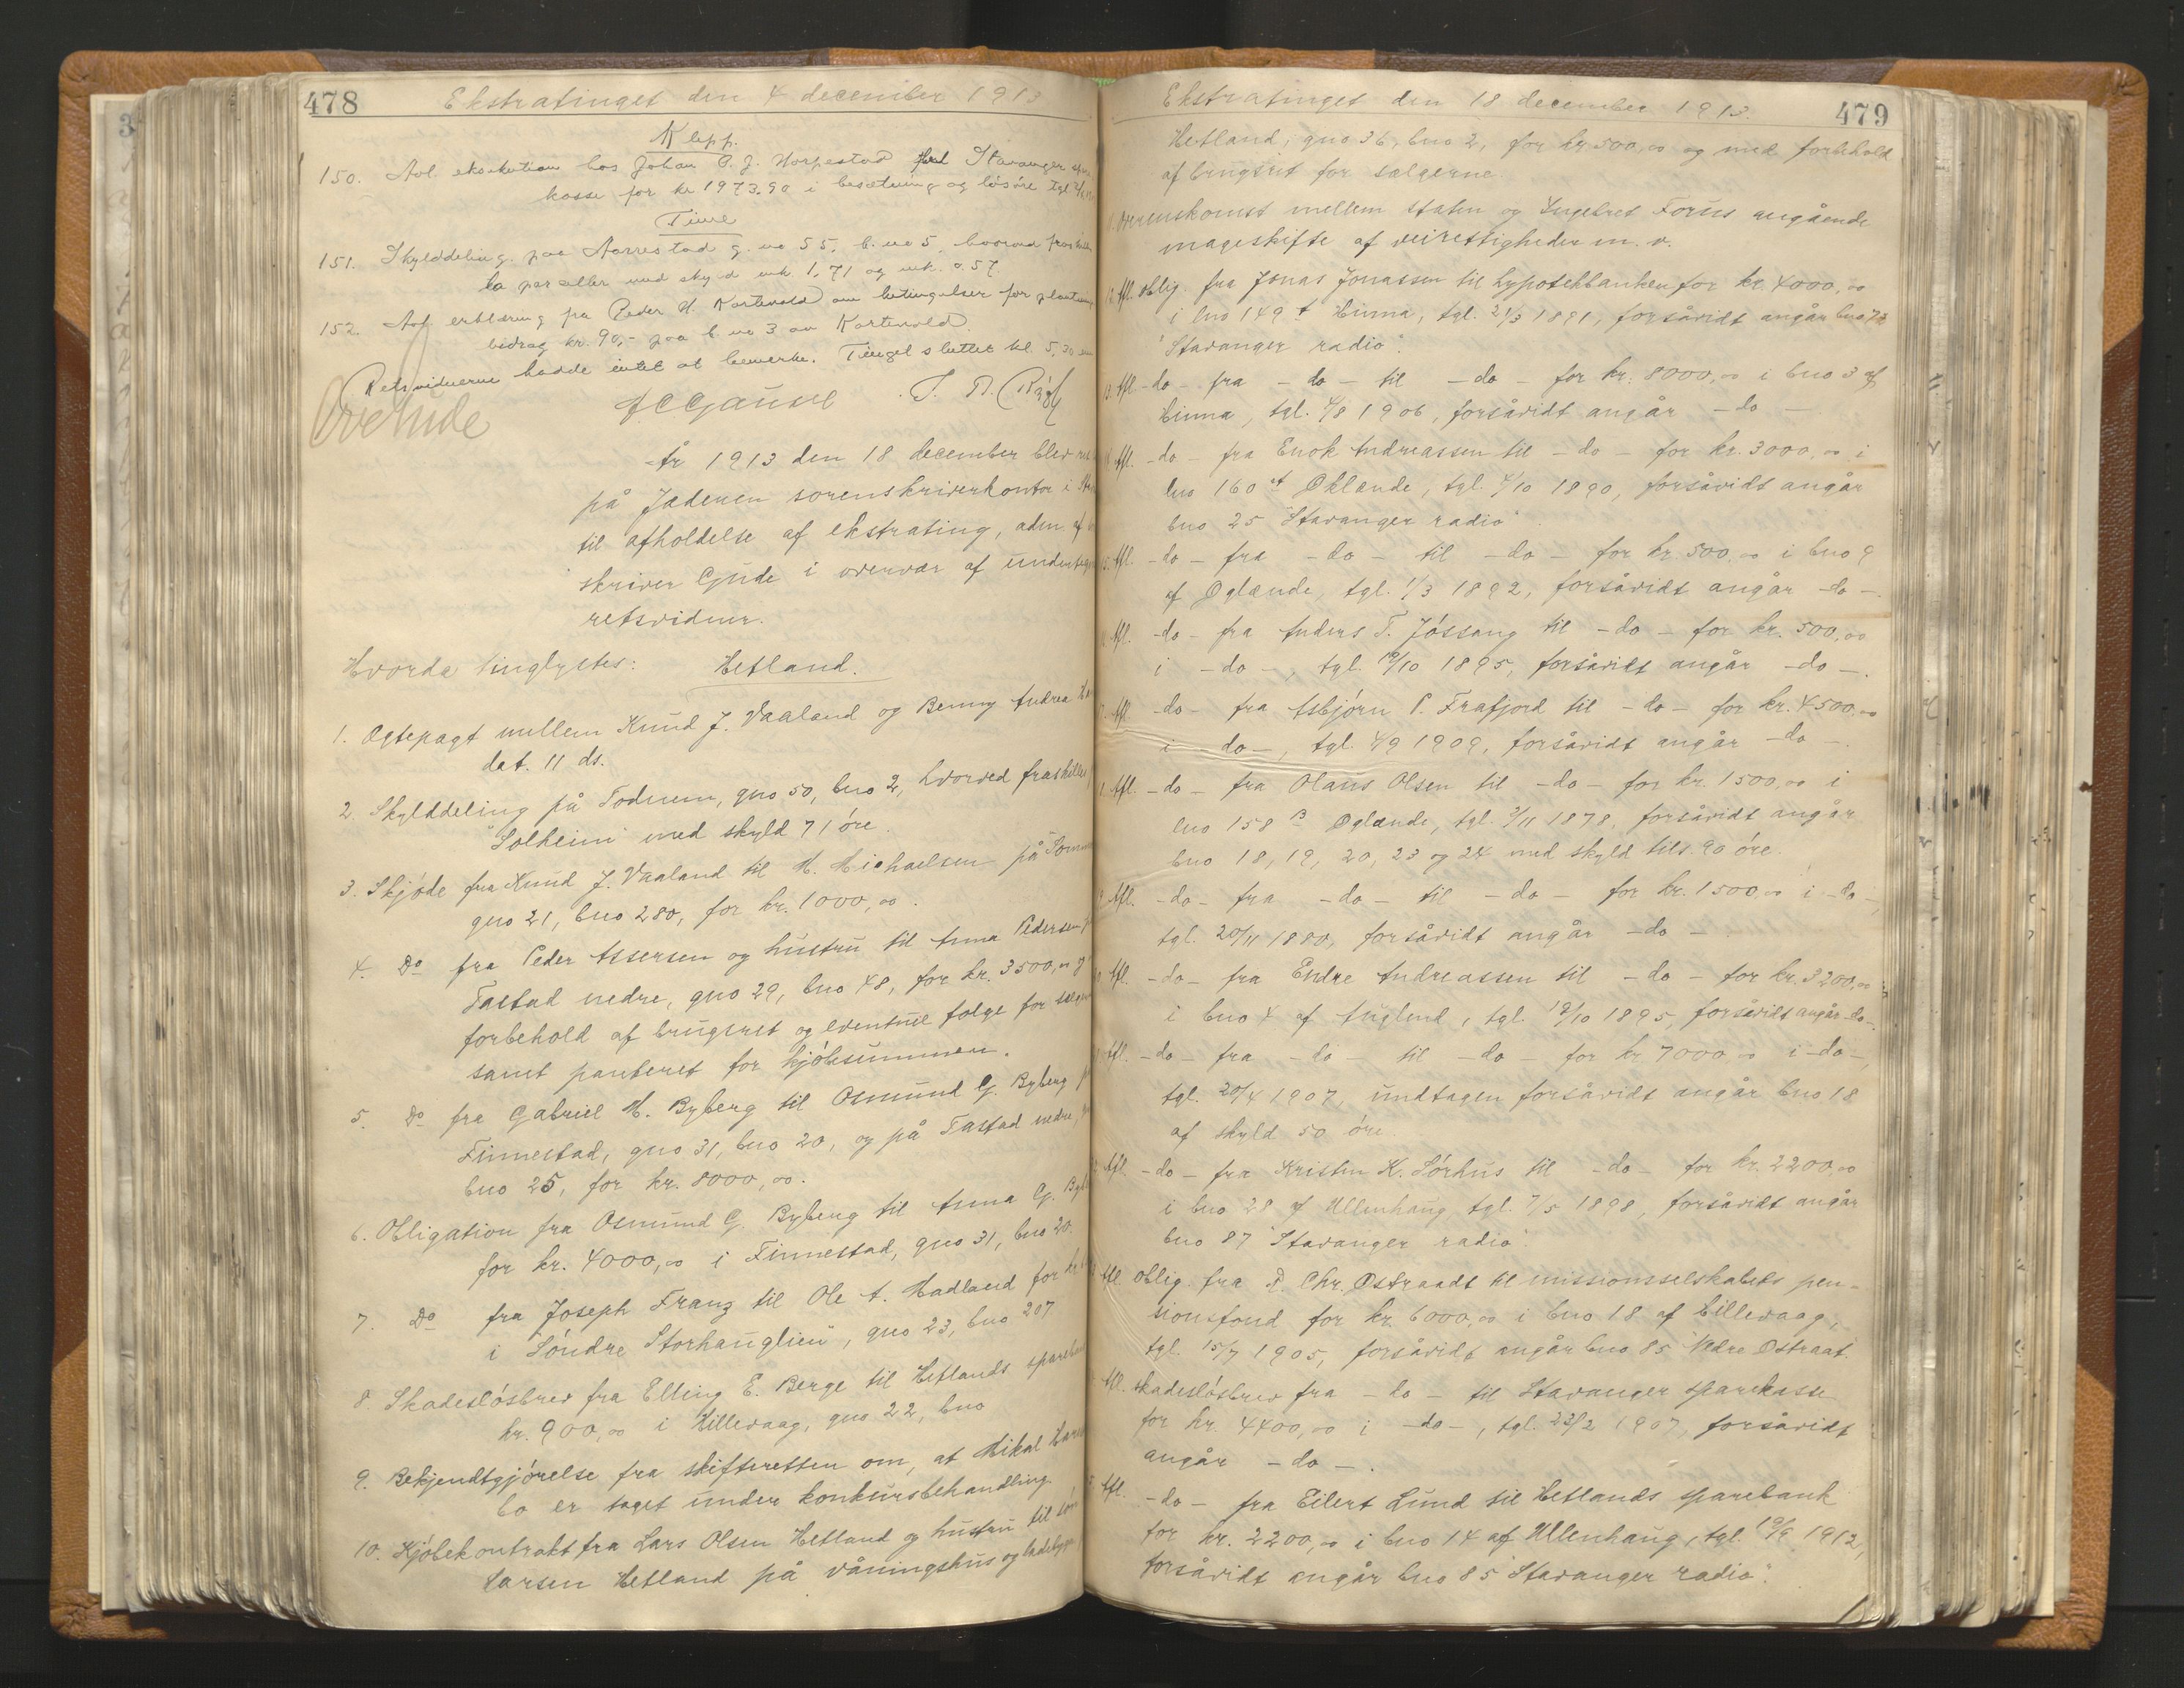 478
Ekstratinget den 4 december 1913
Klepp.
150. Avl. eksekution hos Johan P. J. Horpestad ved Stavanger
kasse for kr 1973.90 i besætning og løsøre tgl
Time
151. Skylddeling paa Aarrestad g. no 55, b. no 5, hvorved
to parceller med skyld mk. 1,71 og mk. 0.57
152. Avl. erklæring fra Peder H. Kartevold om betingelser for
bidrag kr. 90,- paa b. no 3 av Kartevold.
Retsvidnerne hadde intet at bemerke. Tinget sluttet kl. 5,30
År 1913 den 18 december blev
på Jæderen sorenskriverkontor i
til afholdelse af ekstrating, adm af
skriver Gude i overvær af
retsvidner.
Hvorda tinglystes: Hetland.
1. Ægtepagt mellem Knud J. Vaaland og Benny Andrea
dat. 11 ds.
2. Skylddeling på Todnem, gno 50, bno 2, hvorved
"Solheim" med skyld 71 øre.
3. Skjøde fra Knud J. Vaaland til M. Michaelsen på
gno 21, bno 280, for kr. 1000,00.
4. Do fra Peder Assersen og hustru til Anna Pedersen
Tastad nedre, gno 29, bno 48, for kr. 3500,00
forbehold af brugsret og eventuel følge for
samt panteret for kjøbesummen.
5. Do fra Gabriel H. Byberg til Osmund G. Byberg
Finnestad, gno 31, bno 20, og på Tastad nedre,
bno 25, for kr. 8000,00.
6. Obligation fra Osmund G. Byberg til Anna G.
for kr. 4000,00 i Finnestad, gno 31, bno 20.
7. Do fra Joseph Franz til Ole A. Madland for
i "Søndre Storhauglien", gno 23, bno 207
8. Skadesløsbrev fra Elling E. Berge til Hetlands
kr. 900,00 i Hillevaag, gno 22, bno
9. Bekjendtgjørelse fra skifteretten om, at Mikal
bo er taget under konkursbehandling
10. Kjøbekontrakt fra Lars Olsen Hetland og hustru til
Larsen Hetland på våningshus og
Ekstratinget den 18 december 1913.
479
Hetland, gno 36, bno 2, for kr 500,00 og med forbehold
af brugsret for sælgerne.
Overenskomst mellem staten og Ingebret Forus angående
mageskifte af veirettigheder m. v.
Afl. oblig. fra Jonas Jonassen til hypothekbanken for kr. 4000,00
i lno 149 Hinna, tgl. 21/3 1891, forsåvidt angår bno 72
"Stavanger radio".
Afl. -do- fra -do- til -do- for kr. 8000,00 i bno 3 af
Hinna, tgl. 4/8 1906, forsåvidt angår -do-
Afl. -do- fra Enok Andreassen til -do- for kr. 3000,00 i
lno 160 Oklande, tgl. 4/10 1890, forsåvidt angår
bno 25 "Stavanger radio".
15. Afl. -do- fra -do- til -do- for kr 500,00 i bno 9
af Øglænde, tgl. 1/3 1892, forsåvidt angår -do-.
Afl. -do- fra Anders T. Jøssang til -do- for kr. 500,00
i -do-, tgl. 19/10 1895, forsåvidt angår -do-.
Afl. -do- fra Asbjørn P. Frafjord til -do- for kr. 4500,00
i -do-, tgl. 4/9 1909, forsåvidt angår -do-.
Afl. -do- fra Olaus Olsen til -do- for kr. 1500,00 i
lno 158 B Øglænde, tgl. 3/11 1878, forsåvidt angår
bno 18, 19, 20, 23 og 24 med skyld tils. 90 øre.
Afl. -do- fra -do- til -do- for kr. 1500,00 i -do-,
tgl. 20/11 1880, forsåvidt angår -do-
Afl. -do- fra Endre Andreassen til -do- for kr. 3200,00
i bno 4 af Auglend, tgl. 19/10 1895, forsåvidt angår -do-.
Afl. -do- fra -do- til -do for kr 7000,00 i -do-,
tgl. 20/4 1907, undtagen forsåvidt angår bno 18
af skyld 50 øre.
Afl. -do- fra Kristen K. Sørhus til -do- for kr. 2200,00
i bno 28 af Ullenhaug, tgl. 7/5 1898, forsåvidt angår
bno 87 "Stavanger radio".
Afl. oblig. fra P. Chr. Østraadt til missionsselskabets pen-
sionsfond for kr. 6000,00 i bno 18 af Hillevaag,
tgl. 15/7 1905, forsåvidt angår bno 85 "Nedre Østraat".
Afl. skadesløsbrev fra -do- til Stavanger sparekasse
for kr. 4400,00 i -do-, tgl. 23/2 1907, forsåvidt
angår -do-.
Afl. -do- fra Eilert Lund til Hetlands sparebank
for kr. 2200,00 i bno 14 af Ullenhaug, tgl. 19/9 1912,
forsåvidt angår bno 85 "Stavanger radio".